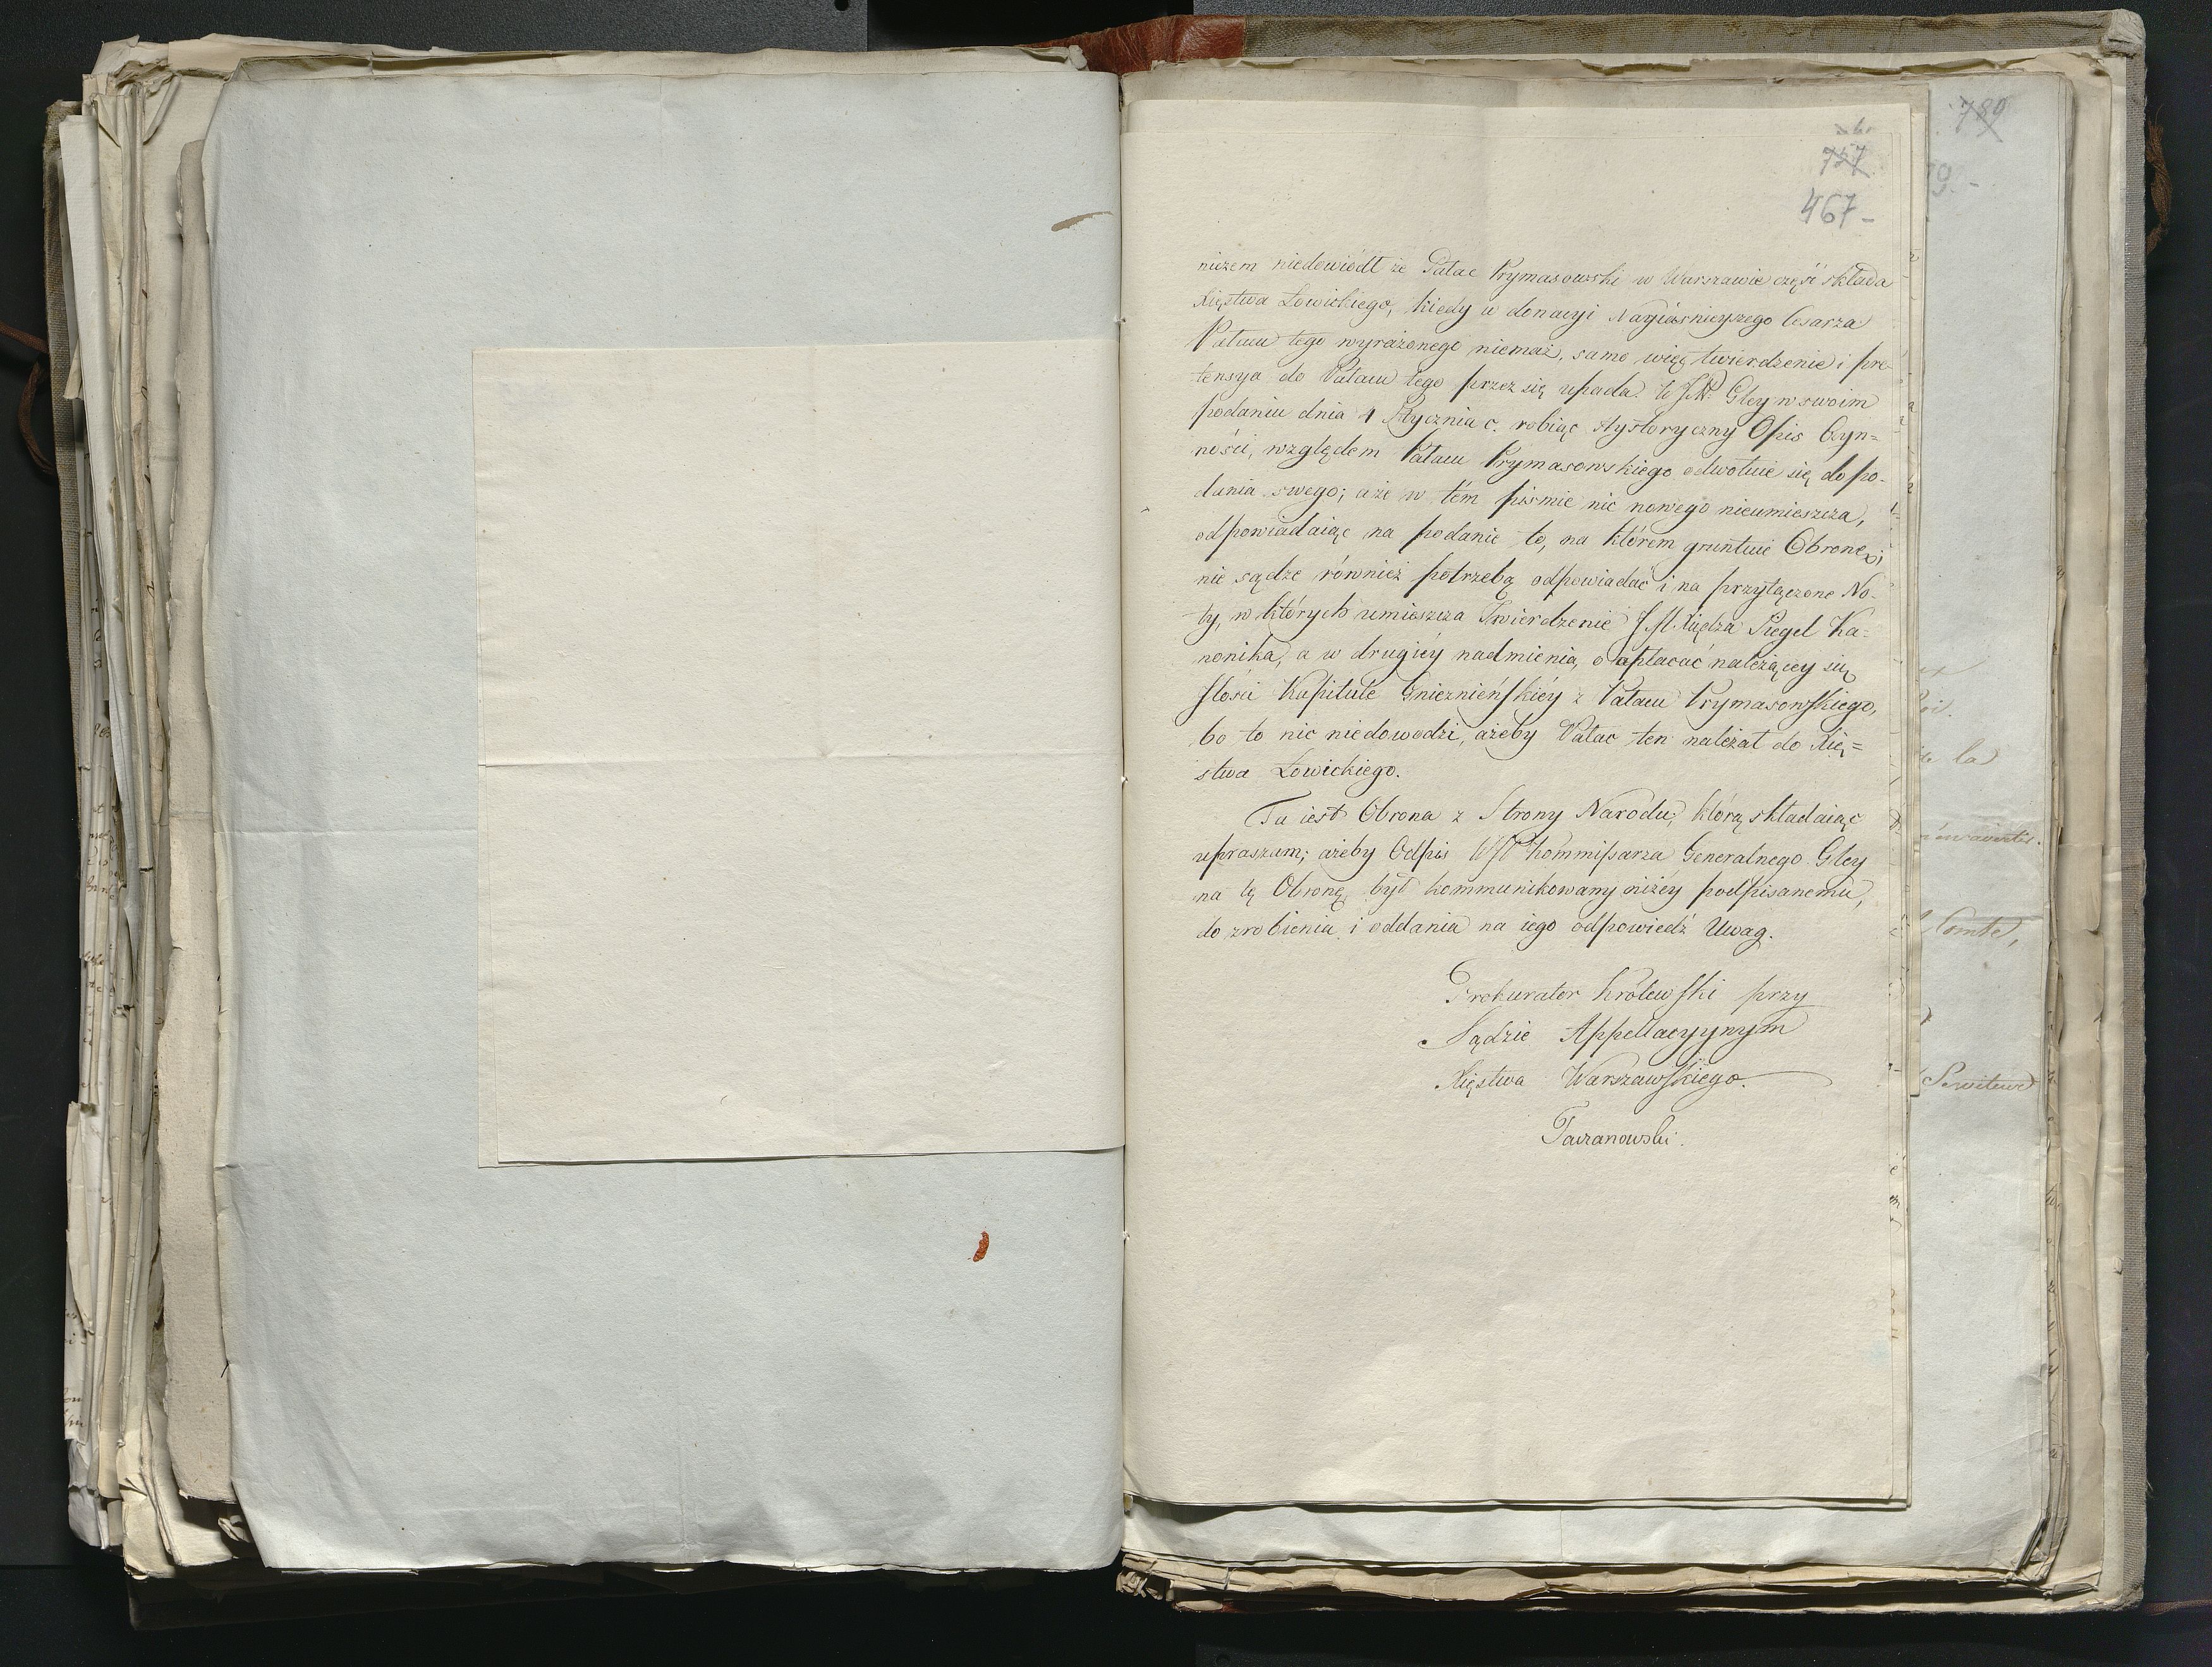 757
467-
niczem niedowiódł że Pałac Prymasowski w Warszawie część składa
Xięstwa Łowickiego, kiedy w donacyi Nayiaśnieyszego Cesarza
Pałacu tego wyrażonego niemasz, samo więc twierdzenie i pre-
tensya do Pałacu tego przez się upada. Gley w swoim
podaniu dnia 4 Stycznia r. c. robiąc Hystoryczny Opis Czyn=
ności, względem Pałacu Prymasowskiego odwołuie się do po-
dania swego; a że w tém piśmie nic nowego nieumieszcza,
odpowiadaiąc na podanie to, na którém gruntuie Obronę;
nie sądzę również potrzebą odpowiadać i na przyłączone No-
ty, w których umieszcza Twierdzenie J. M. Xiędza Siegel Ka=
nonika, a w drugiéy nadmienia, o opłacać należącey się
Ilości Kapitule Gniezniénskiéy z Pałacu Prymasowskiego,
bo to nic niedowodzi, ażeby Pałac ten należał do Xię=
stwa Łowickiego.
Ta iest Obrona z Strony Narodu, którą składaiąc
upraszam; ażeby Odpis Kommissarza Generalnego Gley
na tę Obronę, był kommunikowany niżéy podpisanemu,
do zrobienia i oddania na iego odpowiedź Uwag.
Prokurator Królewski przy
Sądzie Appellacyynym
Xięstwa Warszawskiego.
789
9.-
la
Comte,